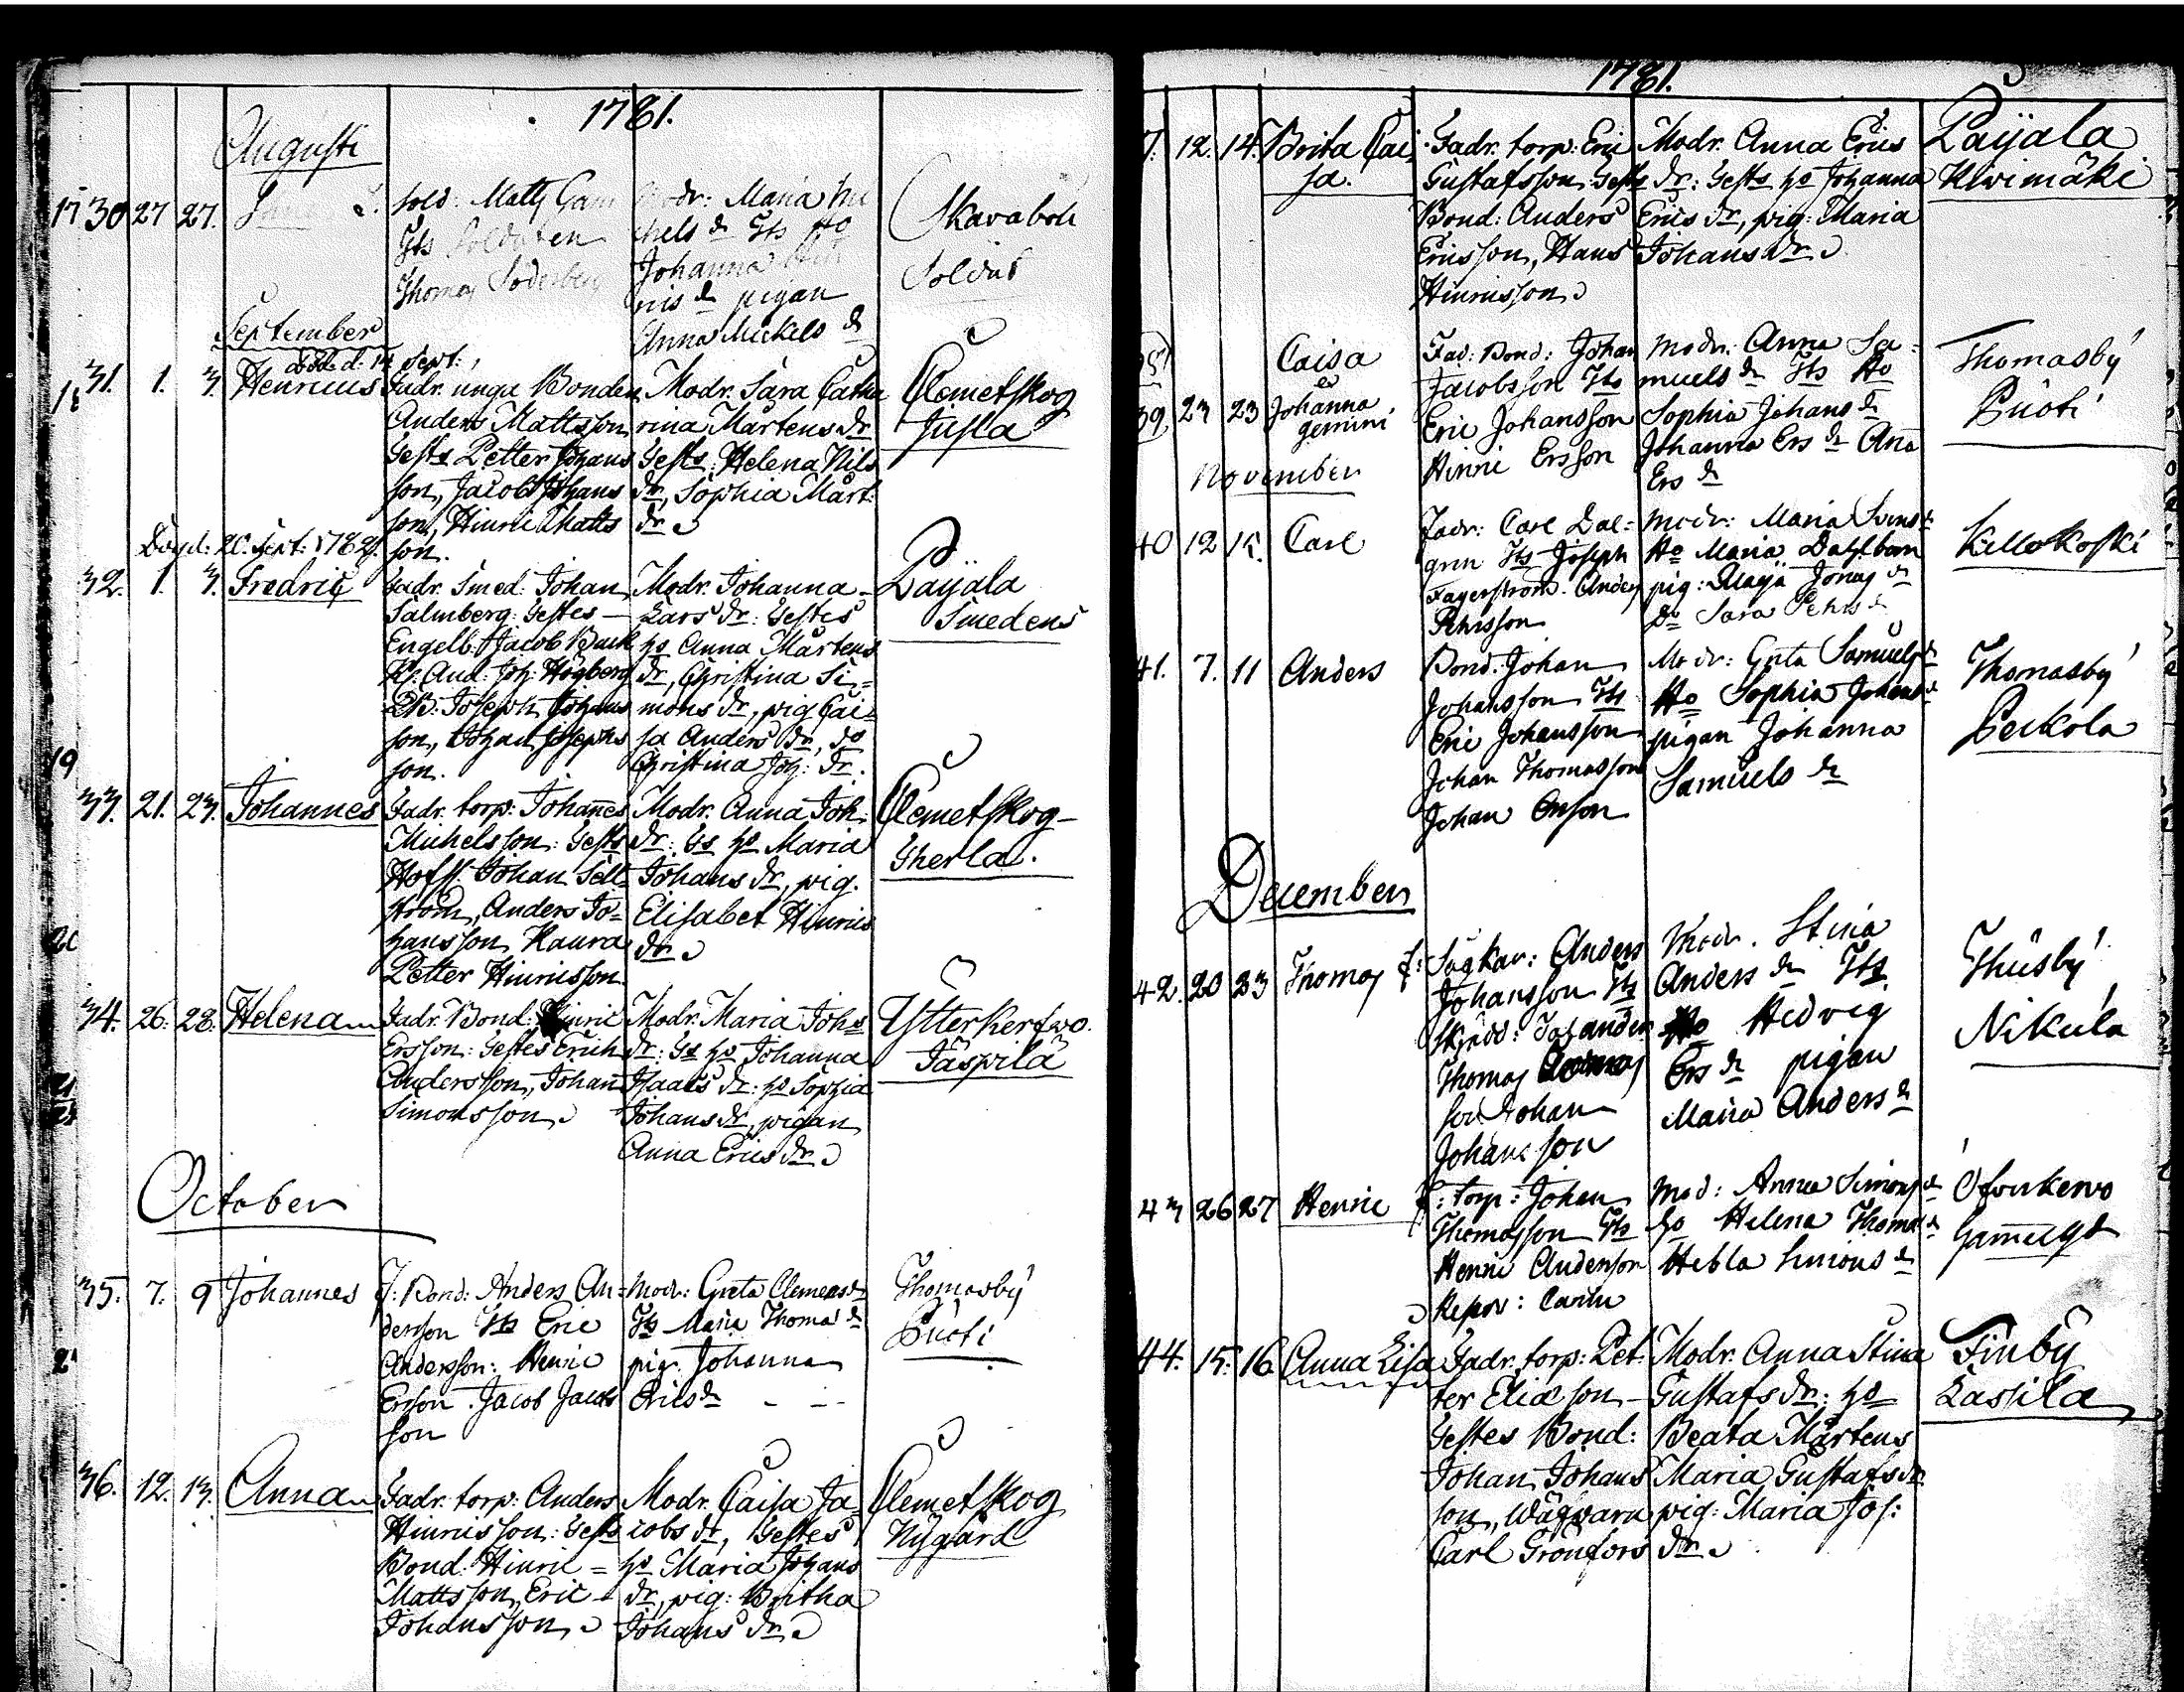 1781.
Augusti
17 30 27 27.
Sold: Matts Gam
Gts Soldaten
Thomas Söderberg
Modr: Maria Mi
chels dr Gts Ho
Johanna
ris dr pigan
Anna Mickels dr
Skavaböle
Soldat
September
död d. 14 Sept:
18 31. 1. 3. Henricus
Fadr. unga Bonden
Anders Mattsson
Gestes Petter Johans
son, Jacob Johans
son, Hinric Matts
son.
Modr. Sara Catha
rina Mårtens dr
Gests: Helena Nils
dr, Sophia Mårt:
dr
Clemetskog
Jusla
Död d: 20. Sept: 1782.
32. 1. 3. Fredric
Fadr. Smed: Johan
Salmberg: Gestes
Engelb: Jacob Back
And: Joh: Högberg
Joseph Johans
son, Johan Josephs
son.
Modr. Johanna
Lars dr: Gestes
ho Anna Mårtens
dr, Christina Si=
mons dr, pig Cai=
sa Anders dr, do
Christina Joh: dr.
Paijala
Smedens
19
33. 21. 23. Johannes
Fadr. torp: Johannes
Michelsson: Gests
Hoffl. Johan Sell
ström, Anders Jo=
hansson Kaura
Petter Hinricsson
Modr. Anna Joh.
dr: Gs ho Maria
Johans dr, pig.
Elisabet Hinrics
dr
Clemetskog
Gherla.
20
34. 26. 28. Helena
Fadr. Bond: Hinric
Ersson: Gestes Erich
Andersson, Johan
Simonsson
Modr. Maria Johs
dr: Gs ho Johanna
Isaacs dr: ho Sophia
Johans dr, pigan
Anna Erics dr
Ytterkerfwo.
Jaspila
October
35. 7. 9 Johannes
f: Bond: Anders An=
dersson Gts Eric
Andersson: Henric
Ersson. Jacob Jacobs
son
Modr: Greta Clemens dr
Gts Maria Thomas dr
pig. Johanna
Erics dr
Thomasby
Puoti
36. 12. 13. Anna
Fadr. torp: Anders
Hinricsson: Gests
Bond: Hinric =
Mattsson, Eric
Johansson
Modr. Caisa Ja
cobs dr, Gestes
ho Maria Johans
dr, pig: Britha
Johans dr
Clemetskog
Nygård
1781.
7. 12. 14. Brita Cai
sa.
Fadr. torp: Eric
Gustafsson Gests
Bond: Anders
Ericsson, Hans
Hinricsson
Modr. Anna Erics
dr: Gests ho Johanna
Erics dr, pig: Maria
Johans dr
Paijala
Kivimäki
39 23 23 Caisa
et
Johanna
gemini
Fad: Bond: Johan
Jacobsson Gts
Eric Johansson
Hinric Ersson
Modr: Anna Sa=
muels dr Gts Ho
Sophia Johans dr
Johanna Ers dr Ana
Ers dr
Thomasby
Puoti
November
40 12 15. Carl
Fadr: Carl Dal=
gren Gts Joseph
Fagerström. Anders
Pehrsson
Modr: Maria Svens dr
Ho Maria Dahlbom
pig: Maja Jonas dr
Do Sara Pehrs dr
Kellokoski
41. 7. 11 Anders
Bond: Johan
Johansson Gts
Eric Johansson
Johan Thomasson
Johan Ersson
Modr: Greta Samuels dr
Ho Sophia Johans dr
pigan Johanna
Samuels dr
Thomasby
Peckola
December
42. 20 23 Thomas
f: Sågkar: Anders
Johansson Gts
Skrädd: Johander
Thomas
son Johan
Johansson
Modr. Stina
Anders dr Gts
Ho Hedvig
Ers dr pigan
Maria Anders dr
Thusby
Nikula
43 26 27 Henric
f: torp: Johan
Thomasson Gts
Henric Anderson
Carin
Mod: Anna Simons dr
ho Helena Thomas dr
Hebla Simons dr
Ofverkervo
Gammelgd
44. 15. 16 Anna Lisa
Fadr. torp: Pet:
ter Eliæson
Gestes Bond:
Johan Johans
son, Wågwara
Carl Grönfors
Modr. Anna Stina
Gustafs dr: ho
Beata Mårtens
Maria Gustafs dr
pig: Maria Jos:
dr
Finby
Lassila